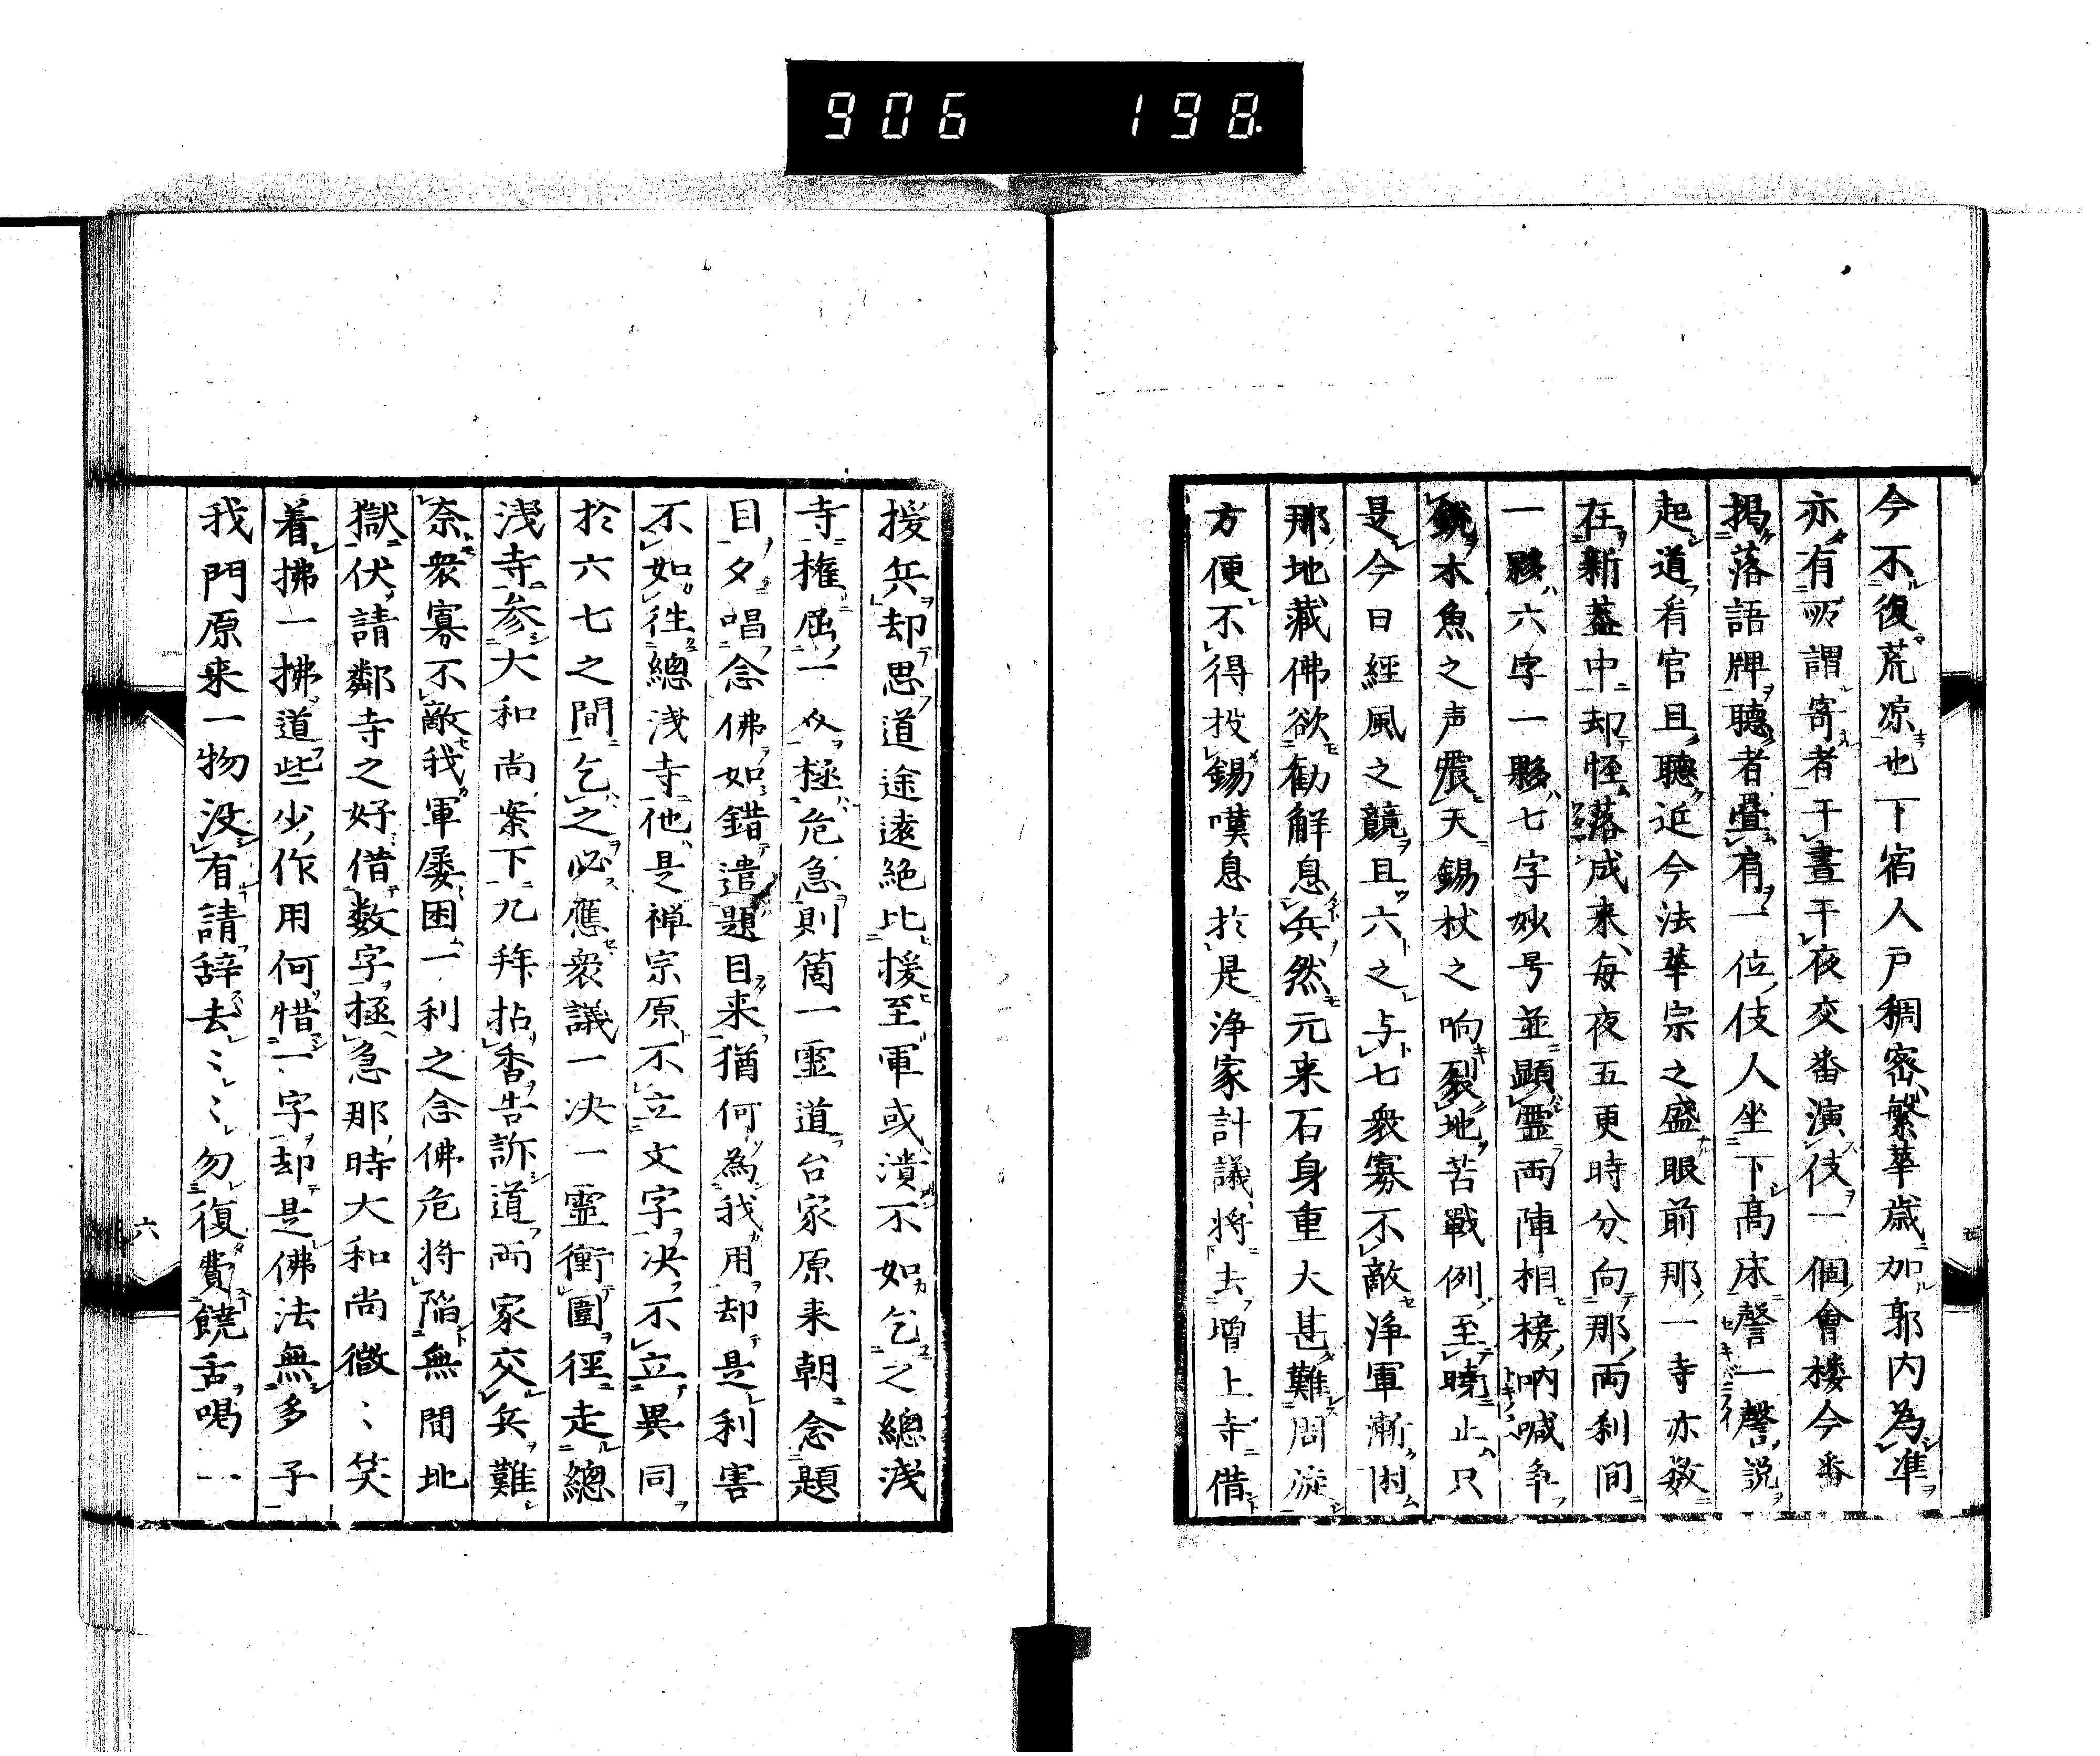 906 198
今不復荒凉也下宿人戸稠密繁華歳加郭内為準
亦有所謂寄者干晝干夜交番演伎一個會楼今番
掲落語牌聴者畳肩一位伎人坐下高床謦一謦説
起道看官且聴近今法華宗之盛眼前那一寺亦数
在新盖中却怪落成来毎夜五更時分向那両刹間
一夥六字一夥七字妙号並顕霊両陣相接吶喊争
鋭木魚之声震天錫杖之响裂地苦戦例至暁止只
是今日經風之競且六之与七衆寡不敵浄軍漸困
那地蔵佛欲勧解息兵然元来石身重大甚難周旋
方便不得投錫嘆息於是浄家計議将去増上寺借
援兵却思道途遠絶比援至軍或潰不如乞之總浅
寺権屈一攵極危急則箇一霊道台家原来朝念題
目夕唱念佛如錯遣題目来猶何為我用却是利害
不如往總浅寺他是禅宗原不立文字决不立異同
於六七之間乞之必應衆議一决一霊衝圍径走總
浅寺参大和尚案下九拜拈香告訴道両家交兵難
奈衆寡不敵我軍屡困一利之念佛危将陥無間地
獄伏請鄰寺之好借数字極急那時大和尚微〻笑
着拂一拂道些少作用何惜一字却是佛法無多子
我門原来一物没有請辞去〻〻勿復費饒舌喝一
六